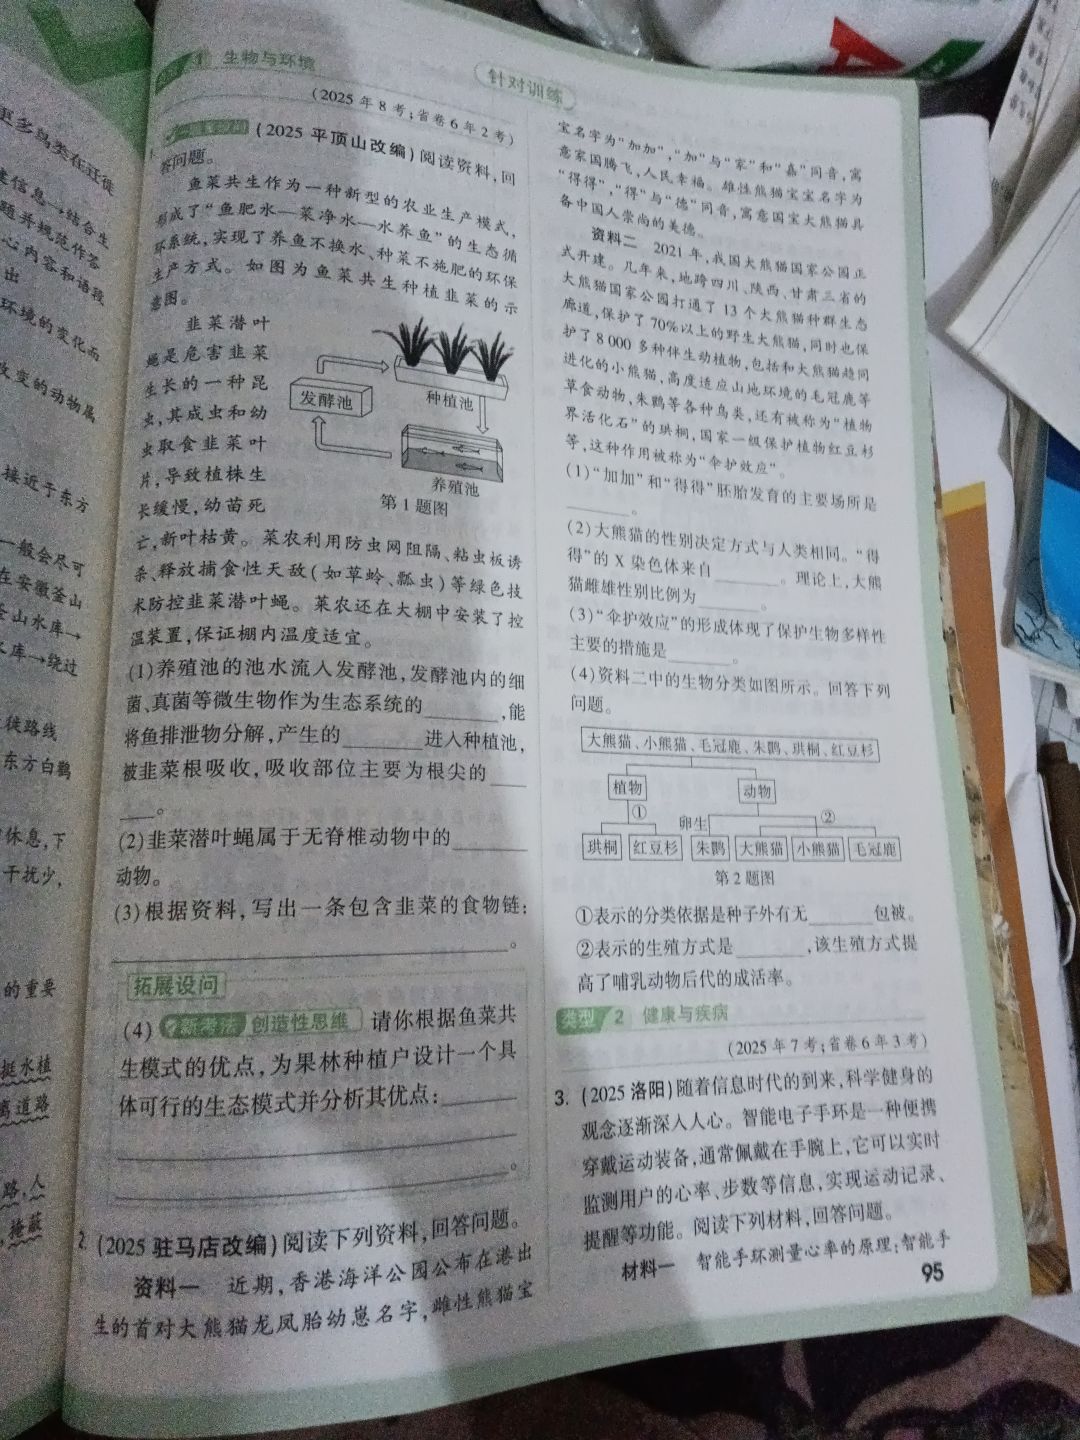 更多鸟类在迁徙
信息→结合生
随并规范作答
心内容和语段
出
环境的变化而
改变的动物属
接近于东方
一般会尽可
在安徽釜山
釜山水库→
水库→绕过
徙路线
东方白鹳
休息,下
干扰少,
的重要
挺水植
离道路
路,人
,掩蔽
1 生物与环境
针对训练
(2025年8考;省卷6年2考)
(2025平顶山改编)阅读资料,回
答问题。
鱼菜共生作为一种新型的农业生产模式,
形成了“鱼肥水—菜净水—水养鱼”的生态循
环系统,实现了养鱼不换水、种菜不施肥的环保
生产方式。如图为鱼菜共生种植韭菜的示
意图。
韭菜潜叶
蝇是危害韭菜
生长的一种昆
虫,其成虫和幼
虫取食韭菜叶
片,导致植株生
长缓慢,幼苗死
发酵池
种植池
养殖池
第1题图
亡,新叶枯黄。菜农利用防虫网阻隔、粘虫板诱
杀、释放捕食性天敌(如草蛉、瓢虫)等绿色技
术防控韭菜潜叶蝇。菜农还在大棚中安装了控
温装置,保证棚内温度适宜。
(1)养殖池的池水流入发酵池,发酵池内的细
菌、真菌等微生物作为生态系统的________,能
将鱼排泄物分解,产生的________进入种植池,
被韭菜根吸收,吸收部位主要为根尖的____
____。
(2)韭菜潜叶蝇属于无脊椎动物中的________
动物。
(3)根据资料,写出一条包含韭菜的食物链:
________________。
拓展设问
(4) 新考法 创造性思维 请你根据鱼菜共
生模式的优点,为果林种植户设计一个具
体可行的生态模式并分析其优点:________
________________
________________。
2. (2025驻马店改编)阅读下列资料,回答问题。
资料一 近期,香港海洋公园公布在港出
生的首对大熊猫龙凤胎幼崽名字,雌性熊猫宝
宝名字为“加加”,“加”与“家”和“嘉”同音,寓
意家国腾飞,人民幸福。雄性熊猫宝宝名字为
“得得”,“得”与“德”同音,寓意国宝大熊猫具
备中国人崇尚的美德。
资料二 2021年,我国大熊猫国家公园正
式开建。几年来,地跨四川、陕西、甘肃三省的
大熊猫国家公园打通了13个大熊猫种群生态
廊道,保护了70%以上的野生大熊猫,同时也保
护了8 000多种伴生动植物,包括和大熊猫趋同
进化的小熊猫,高度适应山地环境的毛冠鹿等
草食动物,朱鹮等各种鸟类,还有被称为“植物
界活化石”的珙桐,国家一级保护植物红豆杉
等,这种作用被称为“伞护效应”。
(1)“加加”和“得得”胚胎发育的主要场所是
________。
(2)大熊猫的性别决定方式与人类相同。“得
得”的X染色体来自________。理论上,大熊
猫雌雄性别比例为________。
(3)“伞护效应”的形成体现了保护生物多样性
主要的措施是________。
(4)资料二中的生物分类如图所示。回答下列
问题。
大熊猫、小熊猫、毛冠鹿、朱鹮、珙桐、红豆杉
植物 动物
① 卵生 ②
珙桐 红豆杉 朱鹮 大熊猫 小熊猫 毛冠鹿
第2题图
①表示的分类依据是种子外有无________包被。
②表示的生殖方式是________,该生殖方式提
高了哺乳动物后代的成活率。
类型 2 健康与疾病
(2025年7考;省卷6年3考)
3. (2025洛阳)随着信息时代的到来,科学健身的
观念逐渐深入人心。智能电子手环是一种便携
穿戴运动装备,通常佩戴在手腕上,它可以实时
监测用户的心率、步数等信息,实现运动记录、
提醒等功能。阅读下列材料,回答问题。
材料一 智能手环测量心率的原理:智能手
95